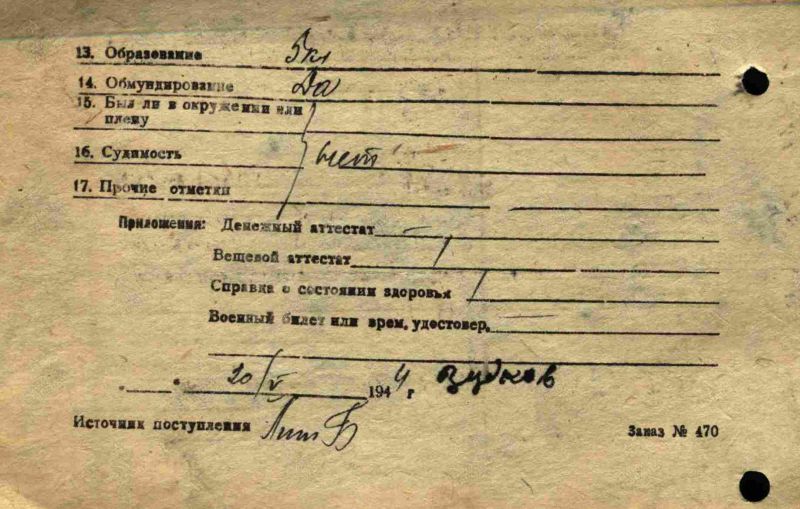 13. Образование 5кл
14. Обмундирование Да
15. Был ли в окружении или
плену
16. Судимость нет
17. Прочие отметки
Приложения: Денежный аттестат —
Вещевой аттестат /
Справка о состоянии здоровья /
Военный билет или врем. удостовер. —
" " 20/V 1944 г
Источник поступления
Заказ № 470